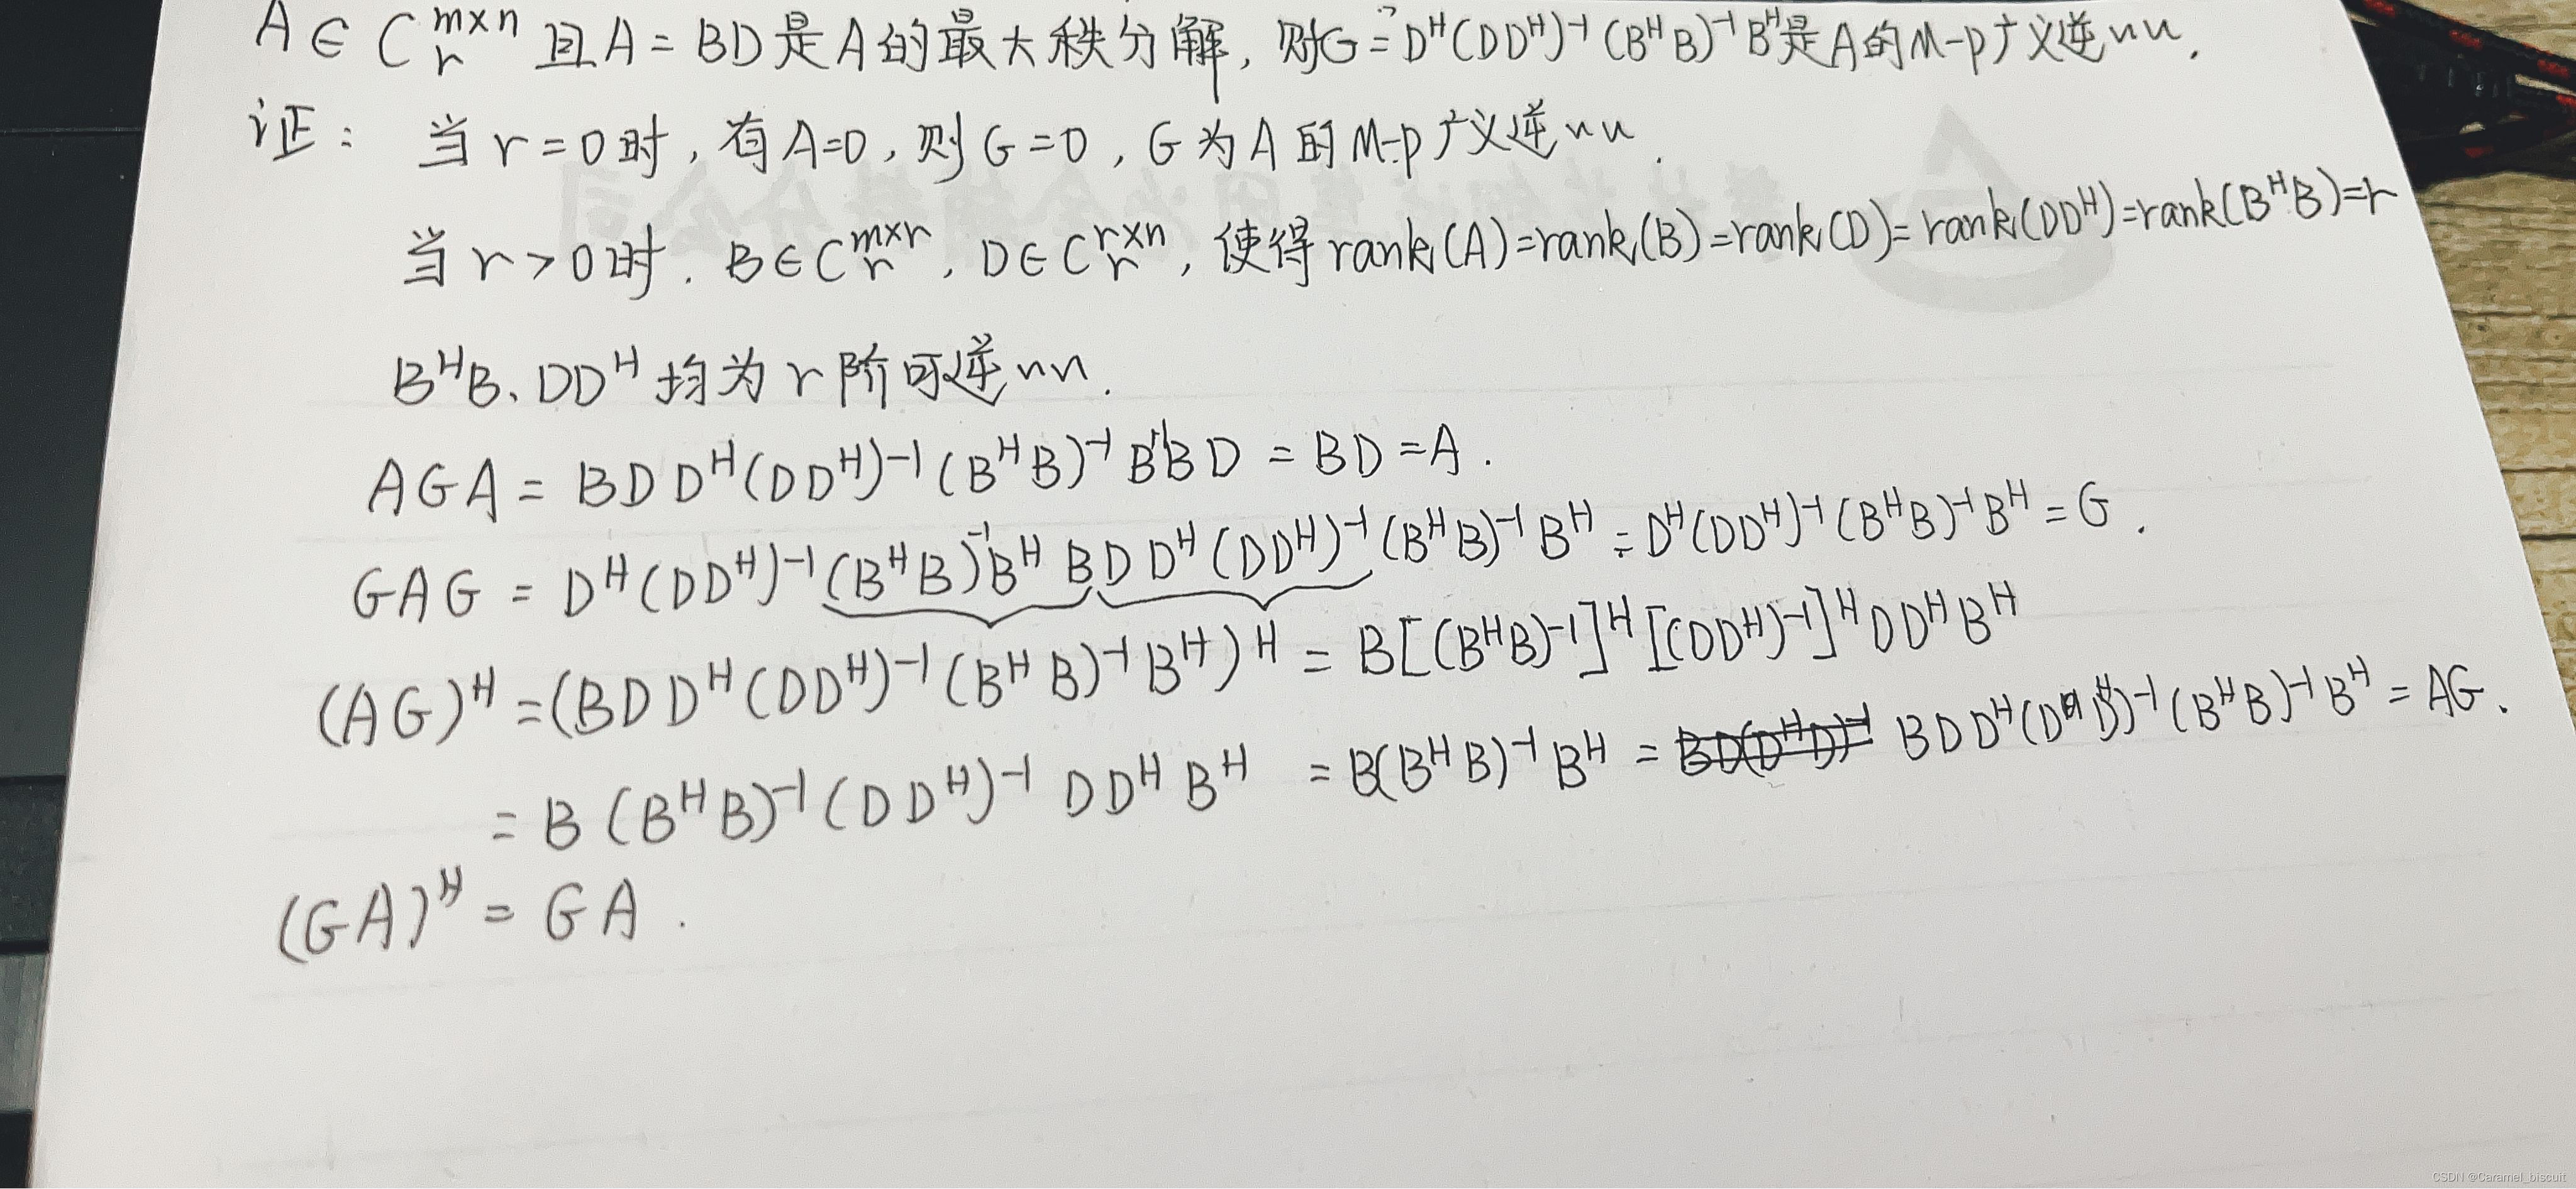 A ∈ C_r^{m×n} 且 A = BD 是 A 的最大秩分解, 则 G = D^H(DD^H)^{-1}(B^HB)^{-1}B^H 是 A 的 M-P 广义逆nn.
证: 当 r = 0 时, 有 A=0, 则 G = 0, G 为 A 的 M-P 广义逆nn.
当 r > 0 时. B ∈ C_r^{m×r}, D ∈ C_r^{r×n}, 使得 rank(A)=rank(B)=rank(D)=rank(DD^H)=rank(B^HB)=r
B^HB、DD^H 均为 r 阶可逆nn.
AGA = BDD^H(DD^H)^{-1}(B^HB)^{-1}B^HBD = BD = A.
GAG = D^H(DD^H)^{-1}(B^HB)^{-1}B^HBDD^H(DD^H)^{-1}(B^HB)^{-1}B^H = D^H(DD^H)^{-1}(B^HB)^{-1}B^H = G.
(AG)^H = (BDD^H(DD^H)^{-1}(B^HB)^{-1}B^H)^H = B[(B^HB)^{-1}]^H[(DD^H)^{-1}]^HDD^HB^H
= B(B^HB)^{-1}(DD^H)^{-1}DD^HB^H = B(B^HB)^{-1}B^H = BDD^H(DD^H)^{-1}(B^HB)^{-1}B^H = AG.
(GA)^H = GA.
CSDN @Caramel_biscuit